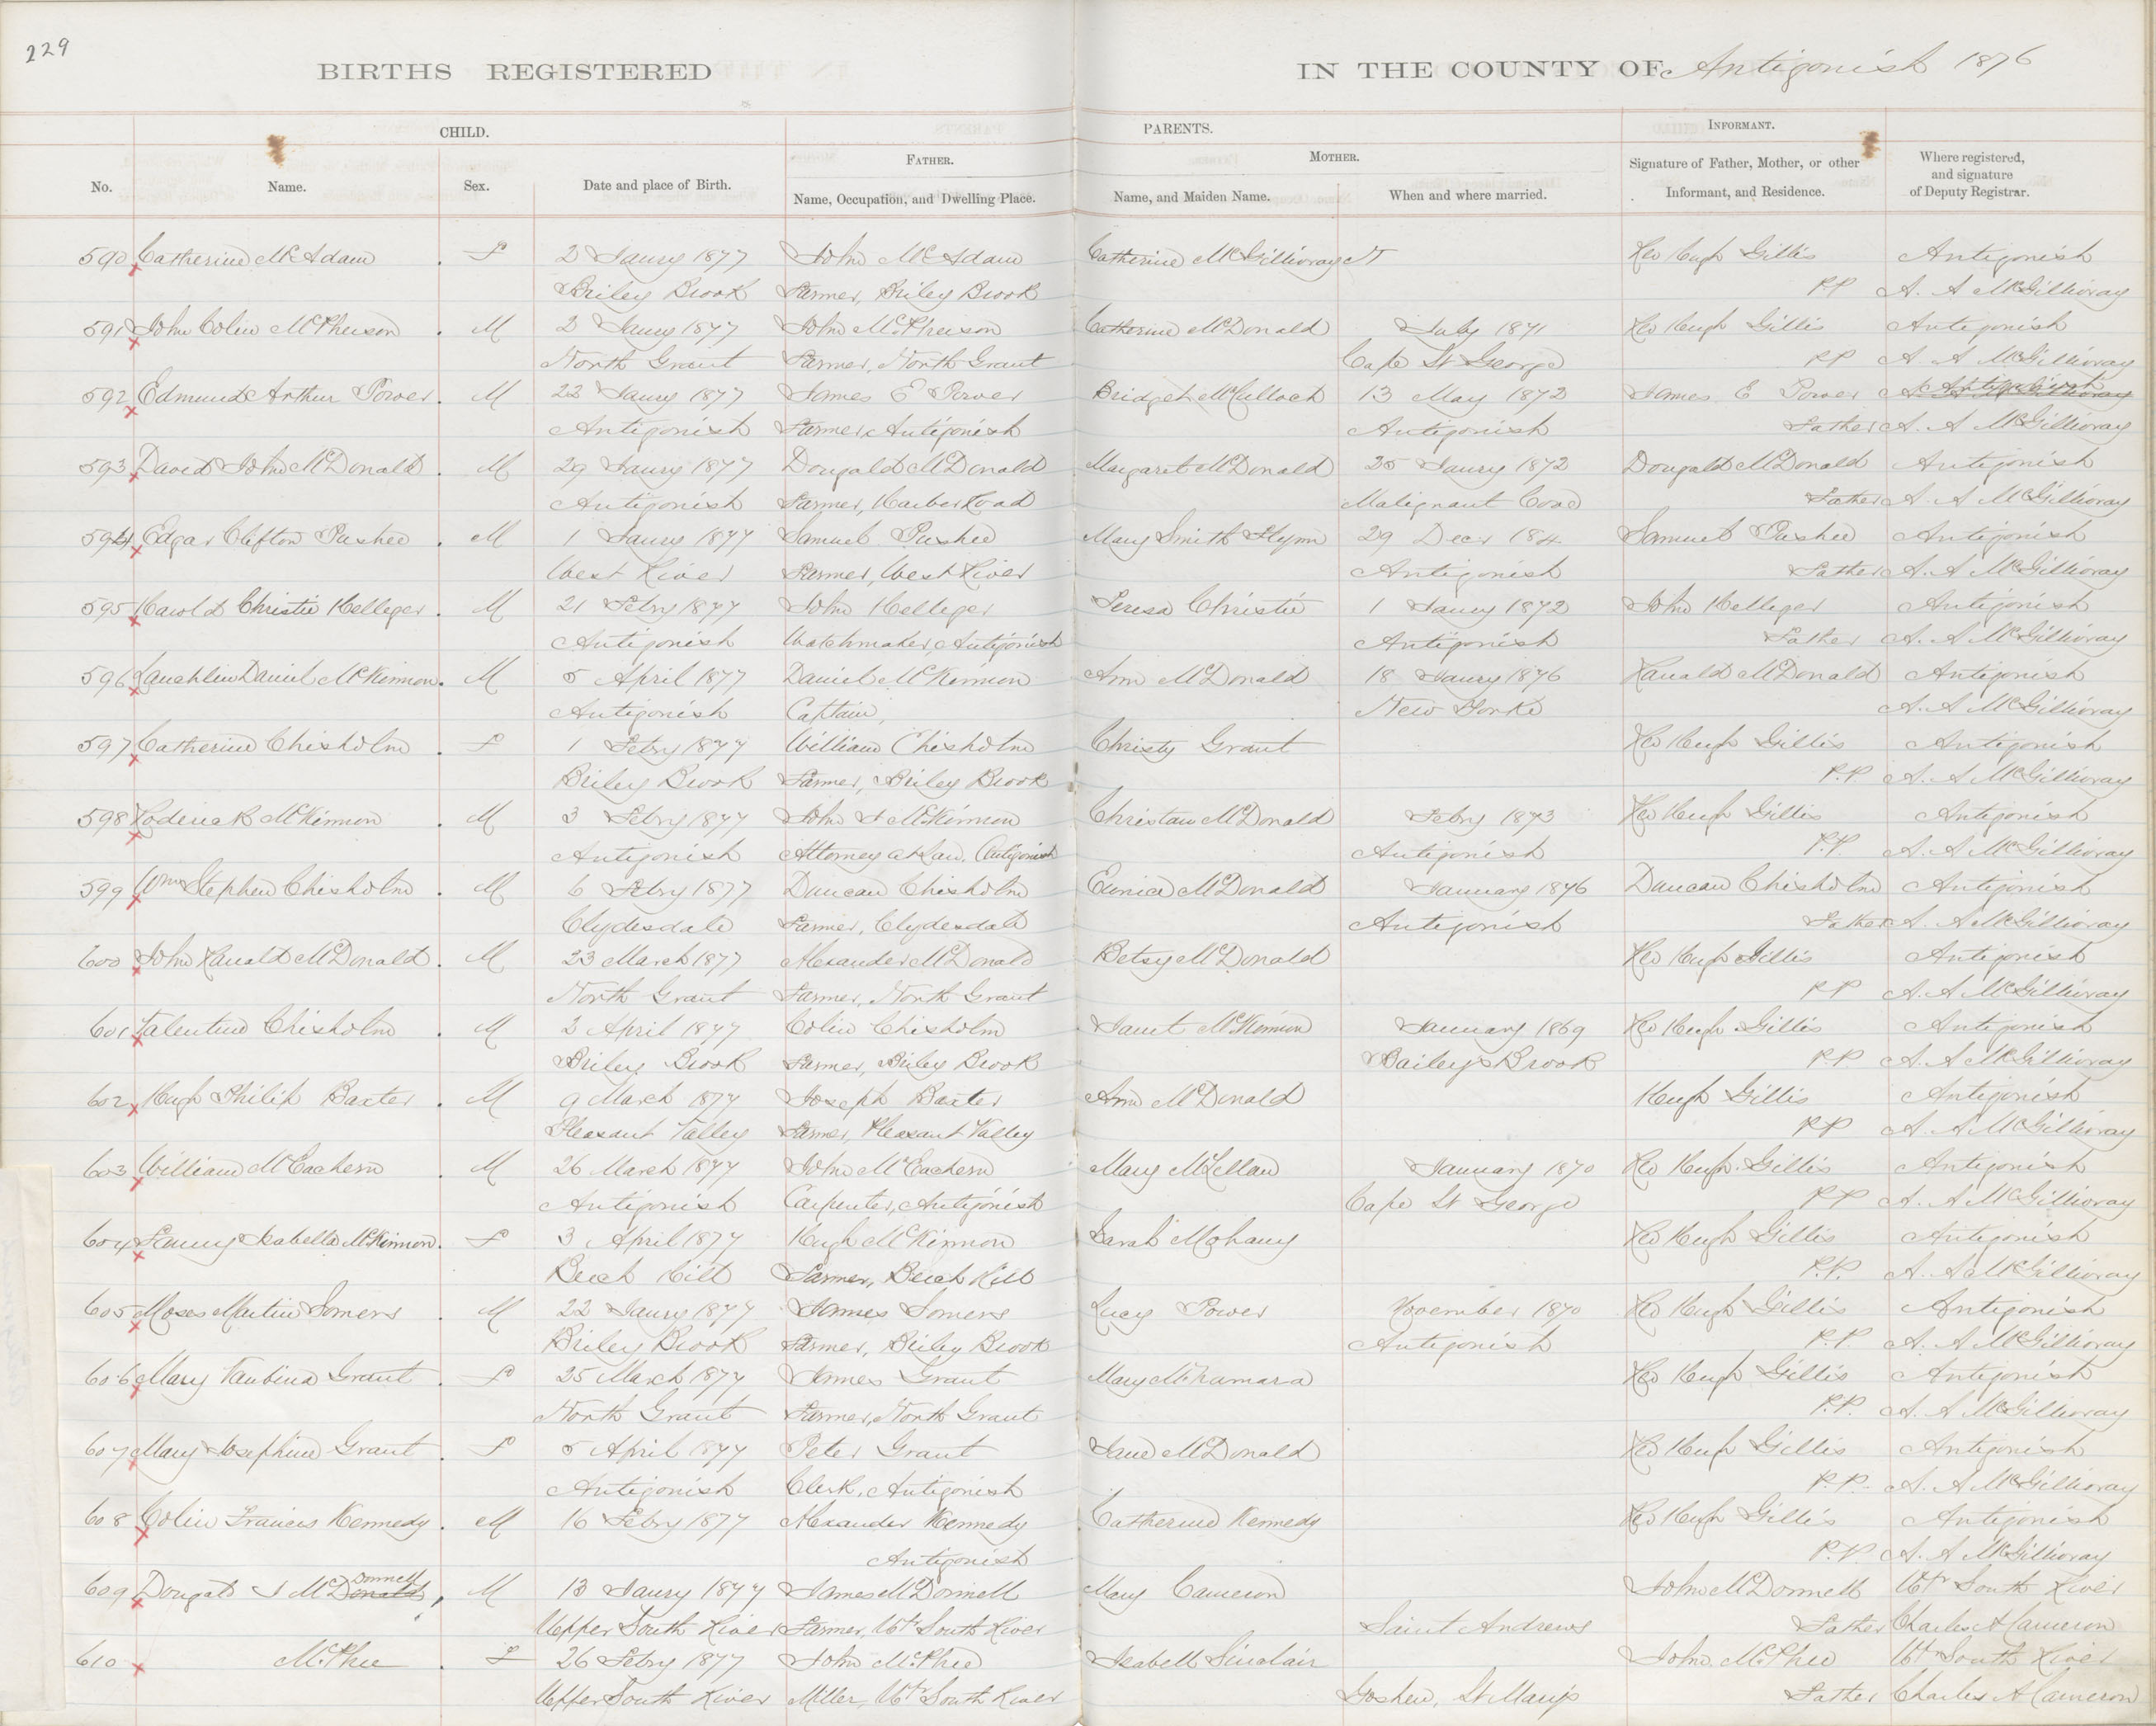 229
BIRTHS REGISTERED IN THE COUNTY OF Antigonish 1876
CHILD. PARENTS. INFORMANT.
FATHER. MOTHER.
No. Name. Sex. Date and place of Birth. Name, Occupation, and Dwelling Place. Name, and Maiden Name. When and where married. Signature of Father, Mother, or other Informant, and Residence. Where registered, and signature of Deputy Registrar.
590 Catherine McAdam . F 2 Jaury 1877 John McAdam Catherine McGillivray Rev Hugh Gillis Antigonish
Briley Brook Farmer, Briley Brook P.P A. A McGillivray
591 John Colin McPherson . M 2 Jaury 1877 John McPherson Catherine McDonald July 1871 Rev Hugh Gillis Antigonish
North Grant Farmer, North Grant Cape St George P.P A A McGillivray
592 Edmund Arthur Power . M 22 Jaury 1877 James E Power Bridget McCulloch 13 May 1872 James E Power Antigonish
Antigonish Farmer, Antigonish Antigonish Father A. A McGillivray
593 David John McDonald . M 29 Jaury 1877 Dougald McDonald Margaret McDonald 25 Jaury 1872 Dougald McDonald Antigonish
Antigonish Farmer, Harbor Road Malignant Cove Father A A McGillivray
594 Edgar Clifton Pushee . M 1 Jaury 1877 Samuel Pushee Mary Smith Flynn 29 Decr Samuel Pushee Antigonish
West River Farmer, West River Antigonish Father A. A McGillivray
595 Harold Christie Helleger . M 21 Febry 1877 John Helleger Teresa Christie 1 Jaury 1872 John Helleger Antigonish
Antigonish Watchmaker, Antigonish Antigonish Father A. A McGillivray
596 Lauchlin Daniel McKinnon . M 5 April 1877 Daniel McKinnon Ann McDonald 18 Jaury 1876 Ranald McDonald Antigonish
Antigonish Captain, New York A. A McGillivray
597 Catherine Chisholm . F 1 Febry 1877 William Chisholm Christy Grant Rev Hugh Gillis Antigonish
Briley Brook Farmer, Briley Brook P.P. A. A McGillivray
598 Roderick McKinnon . M 3 Febry 1877 John J McKinnon McDonald Febry 1873 Rev Hugh Gillis Antigonish
Antigonish Attorney at Law, Antigonish Antigonish P.P. A. A McGillivray
599 Wm Stephen Chisholm . M 6 Febry 1877 Duncan Chisholm Eunice McDonald January 1876 Duncan Chisholm Antigonish
Clydesdale Farmer, Clydesdale Antigonish Father A. A McGillivray
600 John Ranald McDonald . M 23 March 1877 Alexander McDonald Betsy McDonald Rev Hugh Gillis Antigonish
North Grant Farmer, North Grant P.P A. A McGillivray
601 Valentine Chisholm . M 2 April 1877 Colin Chisholm Janet McKinnon January 1869 Rev Hugh Gillis Antigonish
Briley Brook Farmer, Briley Brook Baileys Brook P.P. A. A McGillivray
602 Hugh Philip Baxter . M 9 March 1877 Joseph Baxter Ann McDonald Hugh Gillis Antigonish
Pleasant Valley Farmer, Pleasant Valley P.P A. A McGillivray
603 William McEachern . M 26 March 1877 John McEachern Mary McLellan January 1870 Rev Hugh Gillis Antigonish
Antigonish Carpenter, Antigonish Cape St George P.P A. A McGillivray
604 Fanny Isabella McKinnon . F 3 April 1877 Hugh McKinnon Sarah Mahany Rev Hugh Gillis Antigonish
Beech Hill Farmer, Beech Hill P.P. A. A McGillivray
605 Moses Martin Somers . M 22 Jaury 1877 James Somers Lucy Power November 1870 Rev Hugh Gillis Antigonish
Briley Brook Farmer, Briley Brook Antigonish P.P. A. A McGillivray
606 Mary Grant . F 25 March 1877 James Grant Mary McNamara Rev Hugh Gillis Antigonish
North Grant Farmer, North Grant P.P. A. A McGillivray
607 Mary Josephine Grant . F 5 April 1877 Peter Grant Jane McDonald Rev Hugh Gillis Antigonish
Antigonish Clerk, Antigonish P.P. A. A McGillivray
608 Colin Francis Kennedy . M 16 Febry 1877 Alexander Kennedy Catherine Kennedy Rev Hugh Gillis Antigonish
Antigonish P.P. A. A McGillivray
609 Dougald J McDonald Donnell . M 13 Jaury 1877 James McDonnell Mary Cameron John McDonnell Upr South River
Upper South River Farmer, Upr South River Saint Andrews Father Charles A Cameron
610 McPhee . F 26 Febry 1877 John McPhee Isabell Sinclair John McPhee Upr South River
Upper South River Miller, Upr South River Goshen, St Marys Father Charles A Cameron